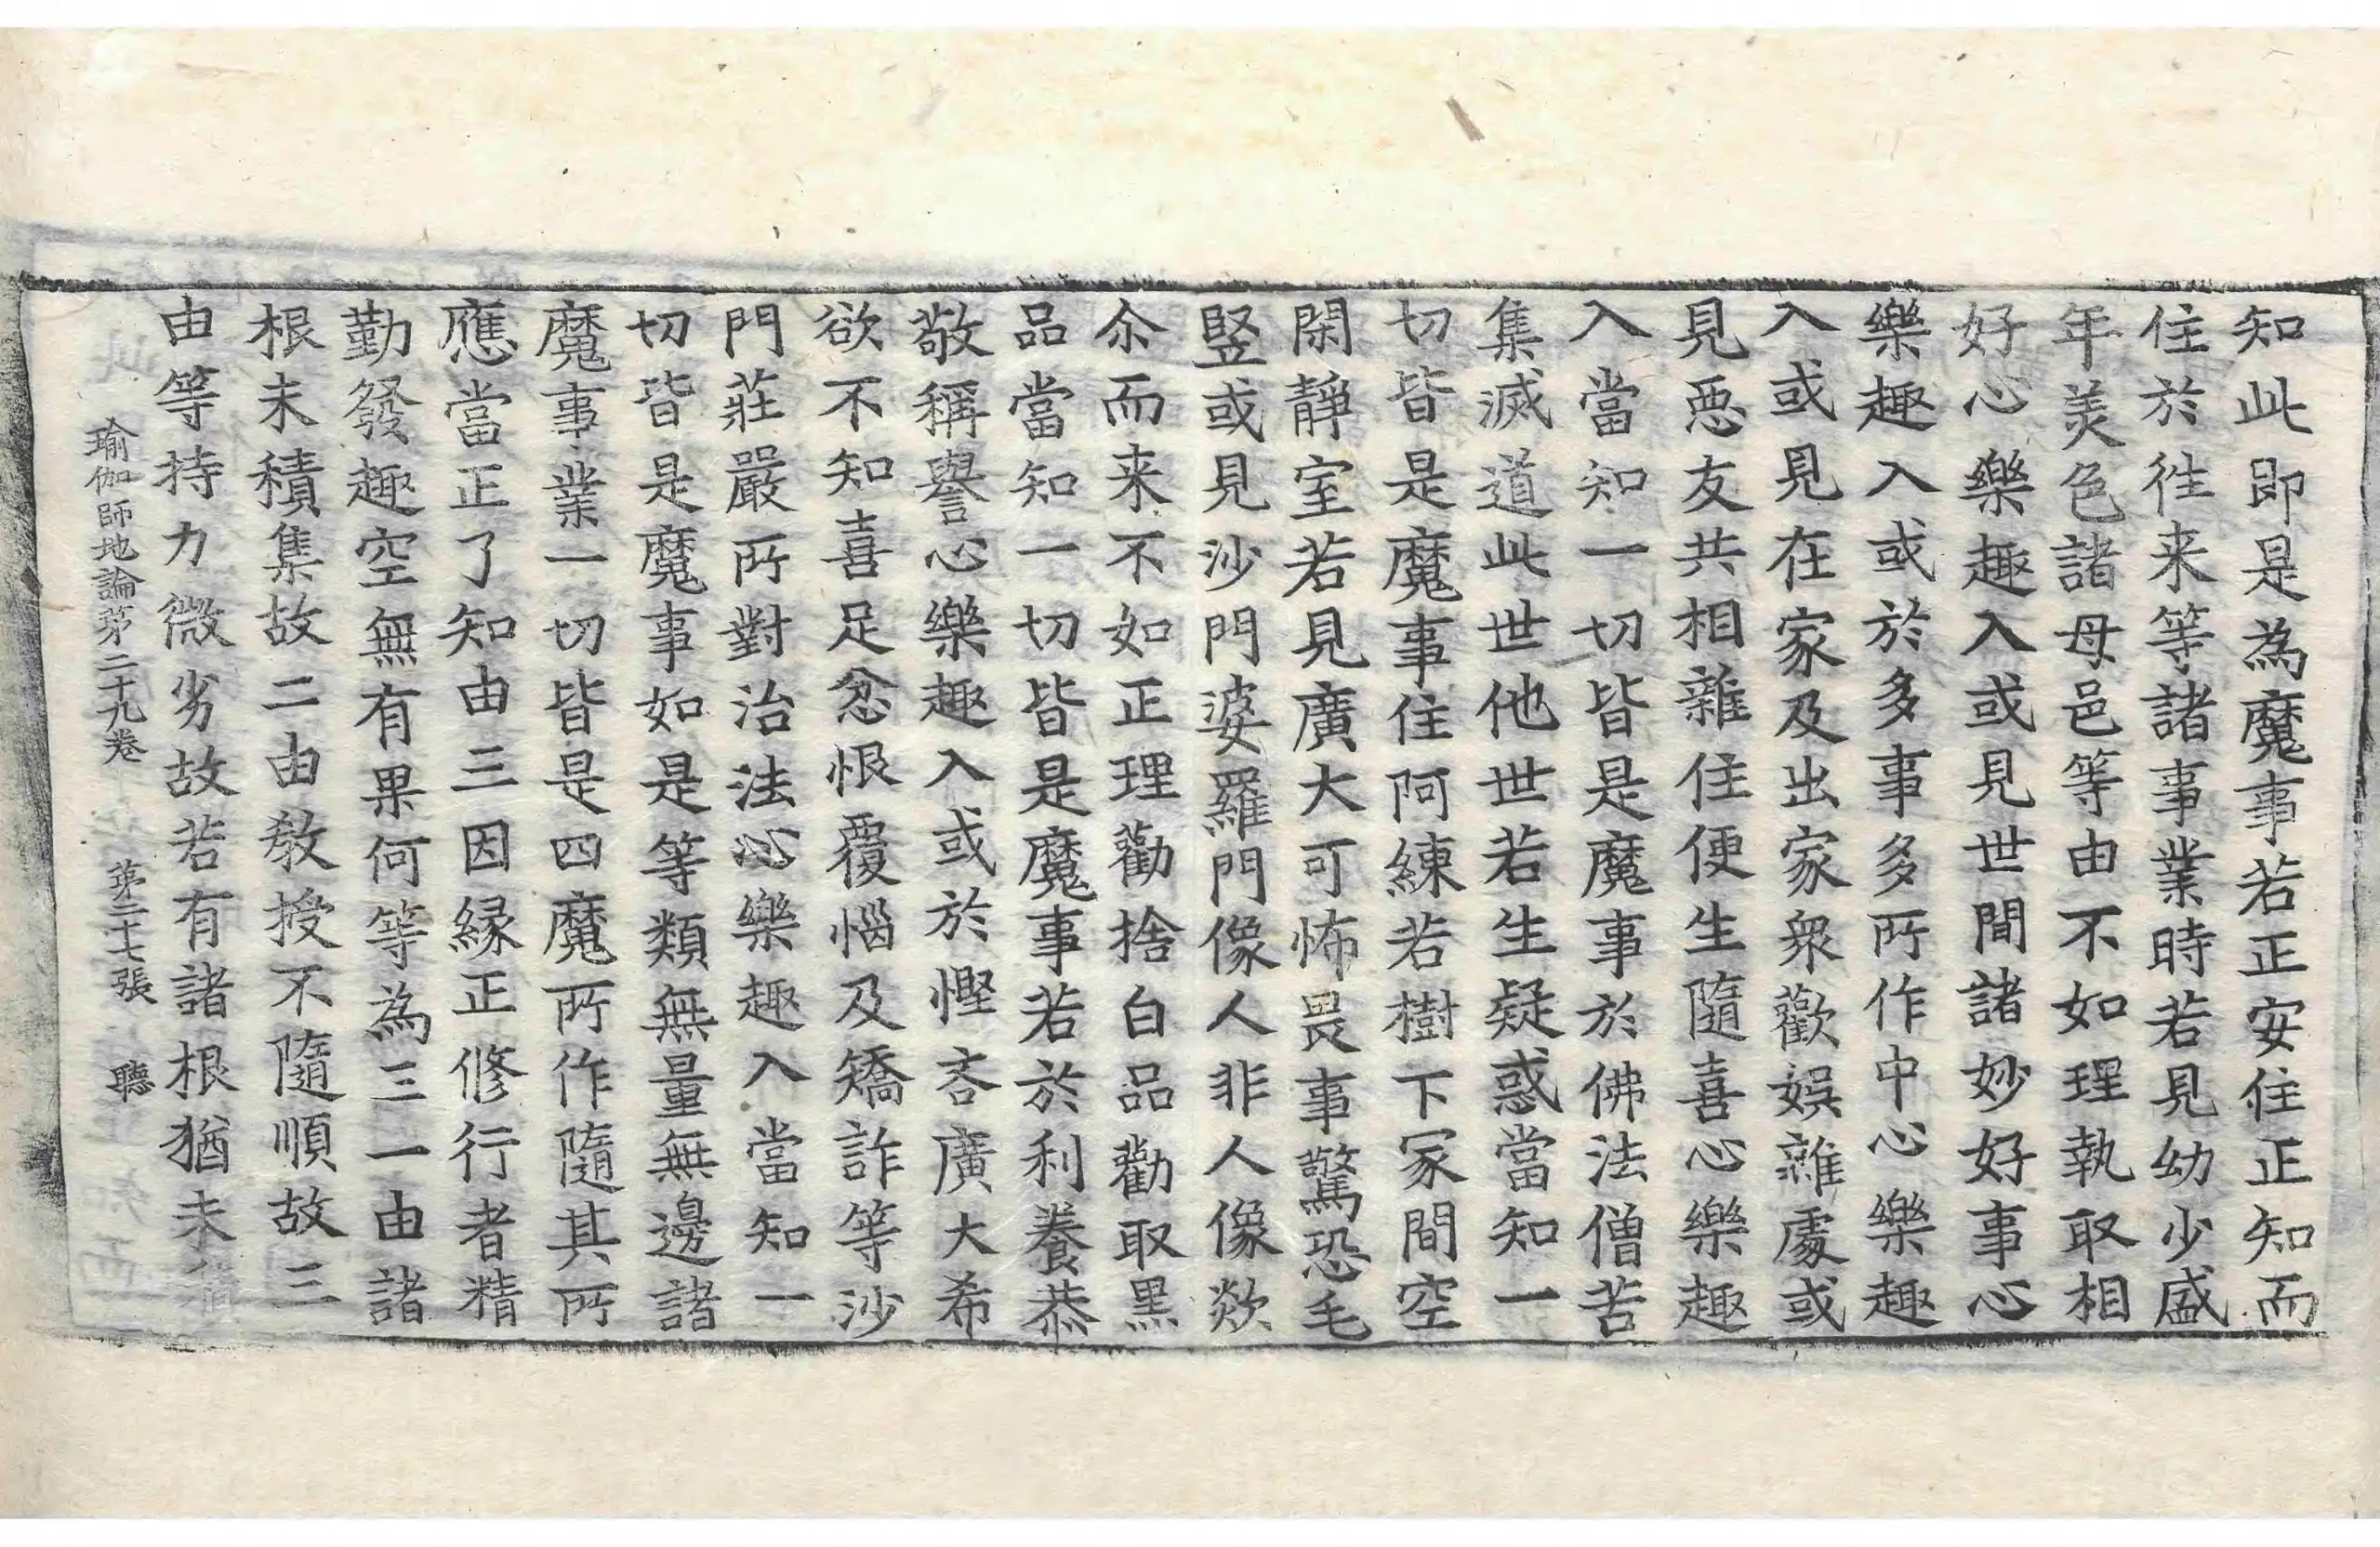 知此即是為魔事若正安住正知而
住於徃来等諸事業時若見幼少盛
年美色諸母邑等由不如理執取相
好心樂趣入或見世間諸妙好事心
樂趣入或於多事多所作中心樂趣
入或見在家及出家衆歡娛雜處或
見惡友共相雜住便生隨喜心樂趣
入當知一切皆是魔事於佛法僧苦
集滅道此世他世若生疑惑當知一
切皆是魔事住阿練若樹下冢間空
閑靜室若見廣大可怖畏事驚恐毛
竪或見沙門婆羅門像人非人像欻
尒而来不如正理勸捨白品勸取黑
品當知一切皆是魔事若於利養恭
敬稱譽心樂趣入或於慳吝廣大希
欲不知喜足忿恨覆惱及矯詐等沙
門莊嚴所對治法心樂趣入當知一
切皆是魔事如是等類無量無邊諸
魔事業一切皆是四魔所作隨其所
應當正了知由三因緣正修行者精
勤發趣空無有果何等為三一由諸
根未積集故二由教授不隨順故三
由等持力微劣故若有諸根猶未積
瑜伽師地論第二十九卷 第二十七張 聽